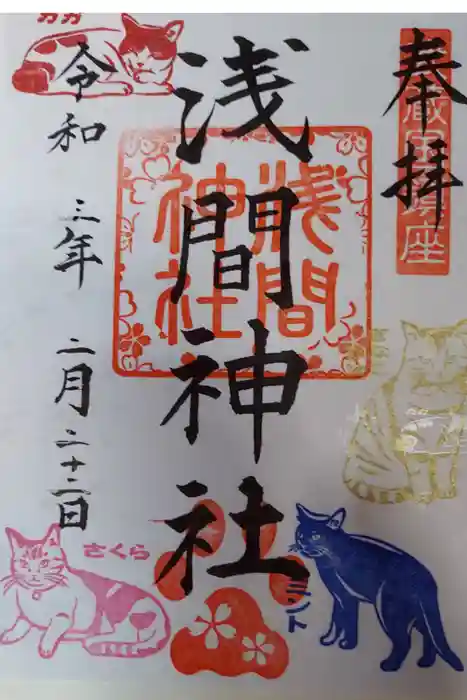 奉拝
武蔵国鎮座
浅間神社
浅間
神社
令和三年二月二十二日
ガガ
さくら
ミント